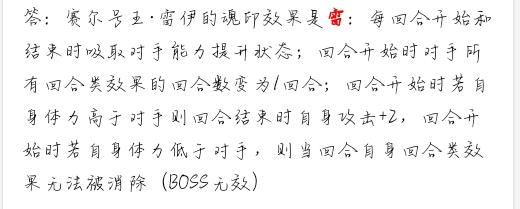 答：赛尔号王·雷伊的魂印效果是雷：每回合开始和
结束时吸取对手能力提升状态；回合开始时对手所
有回合类效果的回合数变为1回合；回合开始时若自
身体力高于对手则回合结束时自身攻击+2，回合开
始时若自身体力低于对手，则当回合自身回合类效
果无法被消除（BOSS无效）